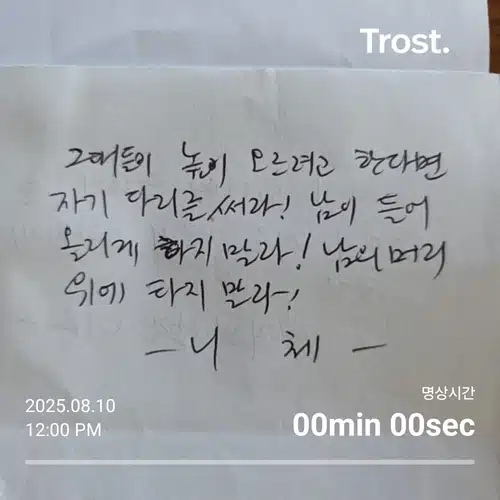 Trost.
그대들이 높이 오르려고 한다면
자기 다리를 써라! 남이 들어
올리게 하지 말라! 남의 머리
위에 타지 말라!
— 니 체 —
명상시간
2025.08.10
12:00 PM
00min 00sec